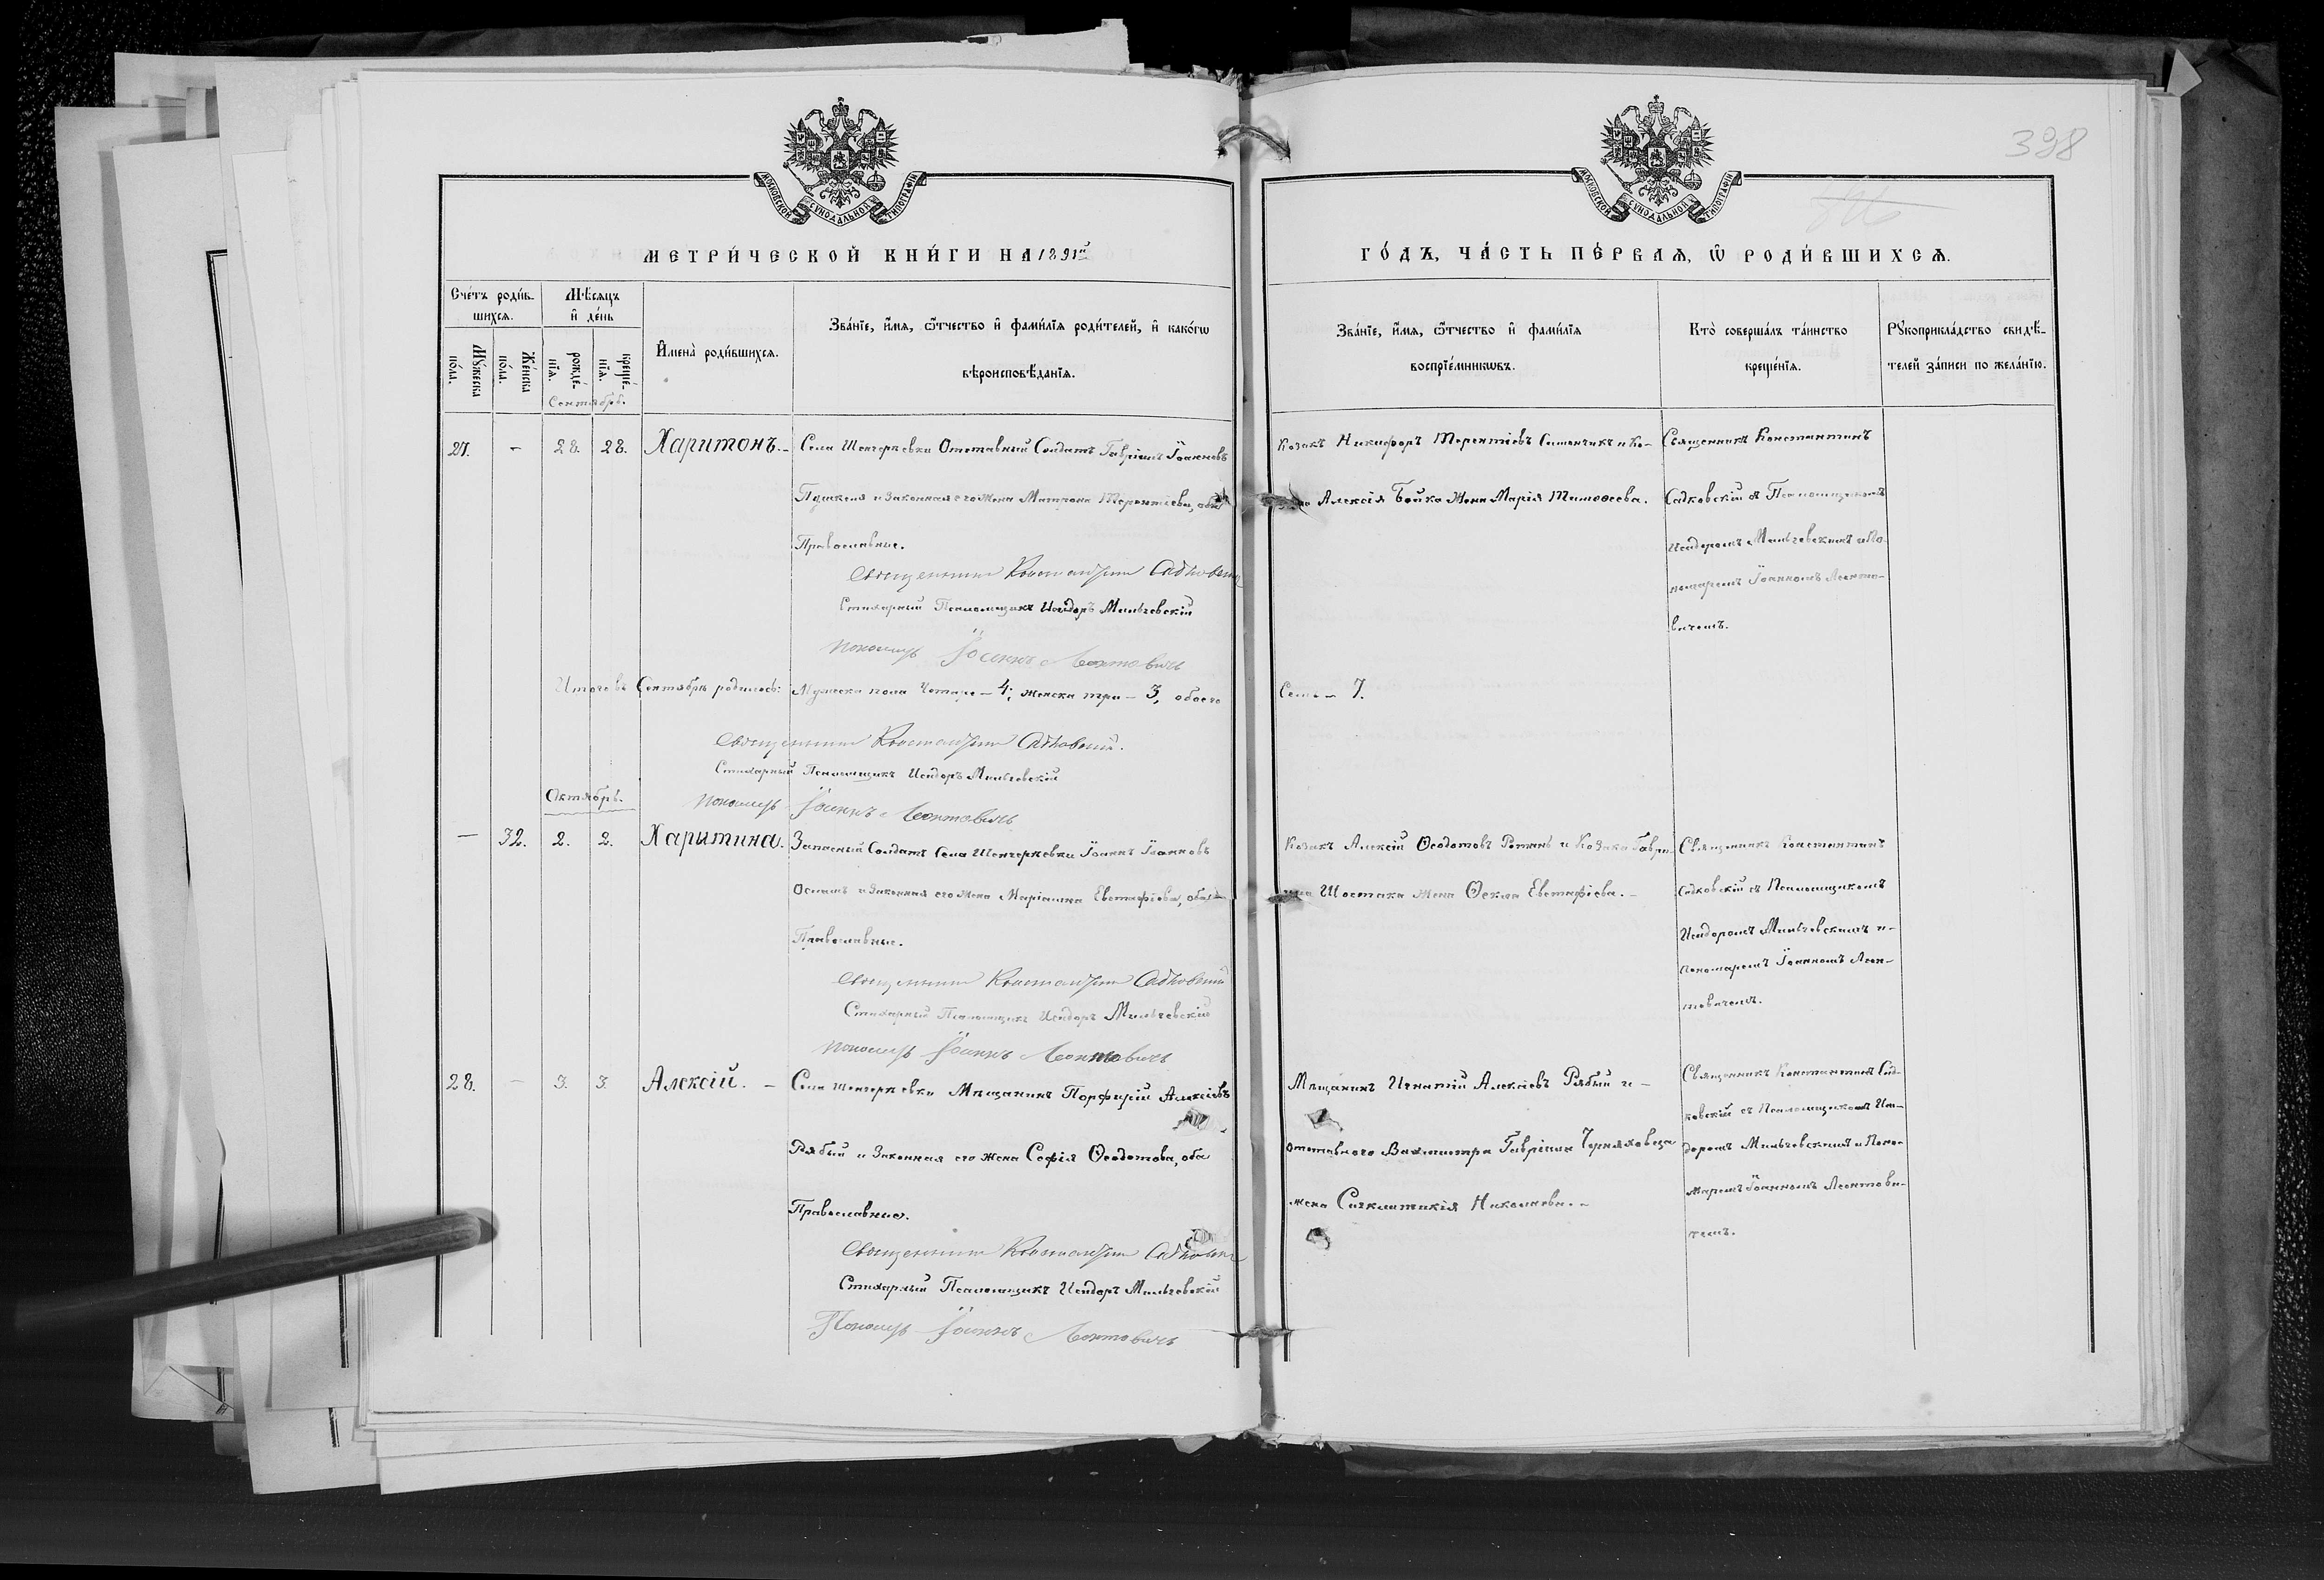 398
МОСКОВСКОЙ СѴНОДАЛЬНОЙ ТИПОГРАФІИ
МОСКОВСКОЙ СѴНОДАЛЬНОЙ ТИПОГРАФІИ
МЕТРИ́ЧЕСКОЙ КНИ́ГИ НА 1891й
ГО́ДЪ, ЧА́СТЬ ПЕ́РВАѦ, Ѡ҆ РОДИ́ВШИХСѦ.
Сче́тъ роди́в-
шихсѧ.
Мꙋ́жеска по́ла.
Же́нска по́ла.
Мѣ́сѧцъ
и҆ де́нь
рожде́-нїѧ.
креще́-нїѧ.
И҆мена̀ роди́вшихсѧ.
Зва́нїе, и҆́мѧ, ѻ҆́тчество и҆ фами́лїѧ роди́телей, и҆ како́гѡ
вѣроисповѣ́данїѧ.
Зва́нїе, и҆́мѧ, ѻ҆́тчество и҆ фами́лїѧ
воспрїе́мникѡвъ.
Кто̀ соверша́лъ та́инство
креще́нїѧ.
Рꙋкоприкла́дство свидѣ́-
телей за́писи по жела́нїю.
Сентябрь.
27. - 28. 28. Харитонъ. -
Села Шенгерѣевки Отставный Солдатъ Гавріилъ Іоанновъ
и законная его жена Матрона Терентіева, оба
Православные.
Священникъ Константинъ Садковскій
Стихарный Псаломщикъ Исидоръ Мильчевскій
Пономарь Іоаннъ Леонтовичъ
Козакъ Никифоръ Терентіевъ и Ко-
Алексія Бойка жена Марія Тимоѳеева.
Священникъ Константинъ
Садковскій съ Псаломщикомъ
Исидоромъ Мильчевскимъ и По-
номаремъ Іоанномъ Леонто-
вичемъ.
Итого въ Сентябрѣ родилось: Мужеска пола Четыре - 4; женска три - 3, обоего
Семь - 7.
Священникъ Константинъ Садковскій.
Стихарный Псаломщикъ Исидоръ Мильчевскій
Пономарь Іоаннъ Леонтовичъ
Октябрь.
- 32. 2. 2. Харитина.
Запасный Солдатъ Села Шенгерѣевки Іоаннъ Іоанновъ
и законная его жена Маріамна Евстафіева, оба
Православные.
Священникъ Константинъ Садковскій
Стихарный Псаломщикъ Исидоръ Мильчевскій
Пономарь Іоаннъ Леонтовичъ
Козакъ Алексій Ѳеодотовъ и Козака Гаврі-
ила Шостака жена Ѳекла Евстафіева. -
Священникъ Константинъ
Садковскій съ Псаломщикомъ
Исидоромъ Мильчевскимъ и -
Пономаремъ Іоанномъ Леон-
товичемъ.
28. - 3. 3. Алексій. -
Села Шенгерѣевки Мѣщанинъ Порфирій Алексіевъ
Рябый и Законная его жена Софія Ѳеодотова, оба
Православные.
Священникъ Константинъ Садковскій
Стихарный Псаломщикъ Исидоръ Мильчевскій
Пономарь Іоаннъ Леонтовичъ
Мѣщанинъ Игнатій Алексіевъ Рябый и -
отставного Вахмистра Гавріила Черняховца
жена Синклитикія Николаева. -
Священникъ Константинъ Сад-
ковскій съ Псаломщикомъ Иси-
доромъ Мильчевскимъ и Поно-
маремъ Іоанномъ Леонтови-
чемъ.